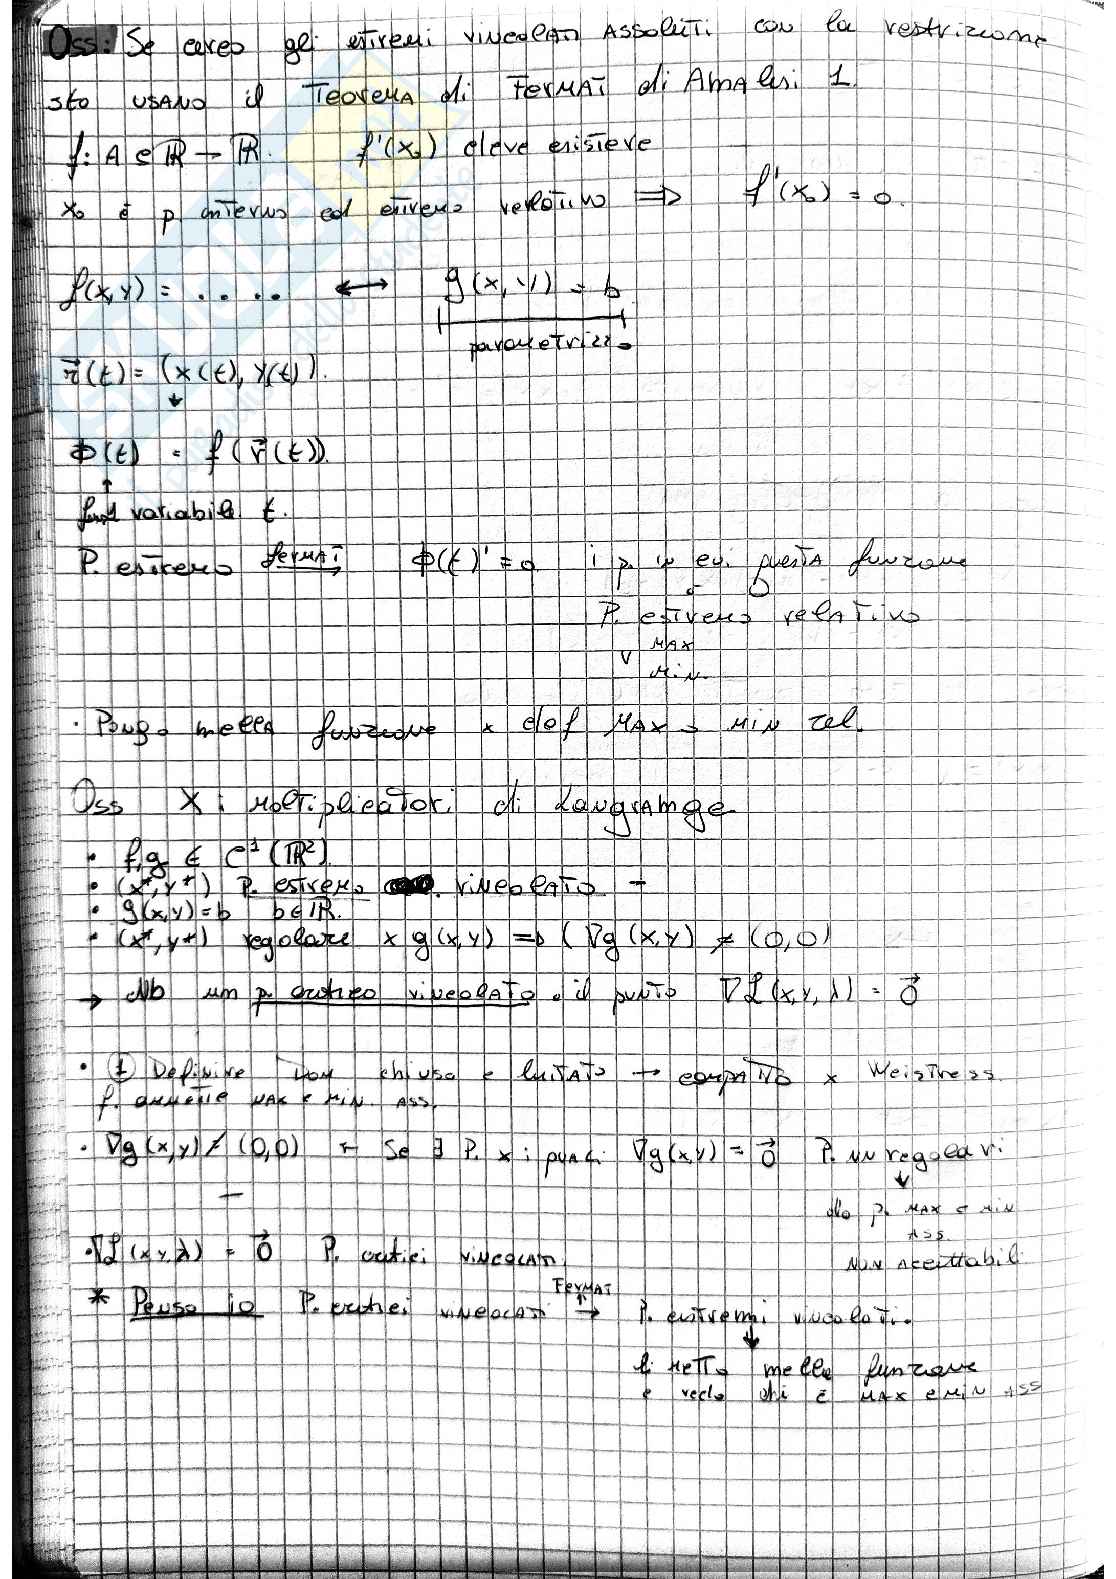 Oss: Se cerco gli estremi vincolati assoluti con la restrizione
sto usano il Teorema di Fermat di Analisi 1.
f: A ⊆ ℝ → ℝ. f'(x₀) deve esistere
x₀ è p. interno ed estremo relativo ⟹ f'(x₀) = 0.
f(x,y) = . . . . ↔ g(x,y) = b
parametrizzo
r⃗(t) = (x(t), y(t)).
↓
Φ(t) = f(r⃗(t)).
↑
funz variabile t.
P. estremo Fermat → Φ(t)' = 0 i p. in cui questa funzione
è 0
P. estremo relativo
MAX
v
Min.
· Pongo nella funzione x def MAX e MIN rel.
Oss X: Moltiplicatori di Laugrange
· f,g ∈ C¹(ℝ²)
· (x*, y*) P. estremo vincolato –
· g(x,y) = b b ∈ ℝ.
· (x*, y*) regolare x g(x,y) ⟹ (∇g(x,y) ≠ (0,0)
→ Ho un p. critico vincolato. il punto ∇L(x,y,λ) = 0⃗
· ① Definire Dom chiuso e limitato → compatto x Weistress.
f. ammette MAX e MIN. ASS.
· ∇g(x,y) ≠ (0,0) ← Se ∃ P. x i punti ∇g(x,y) = 0⃗ P. nn regolari
↓
Ho p. MAX e MIN
ASS
NON Accettabili
· ∇L(x,y,λ) = 0⃗ P. critici vincolati.
Fermat
↑
* Penso io P. critici vincolati → P. estremi vincolati.
↓
li metto nella funzione
e vedo chi è MAX e MIN ASS